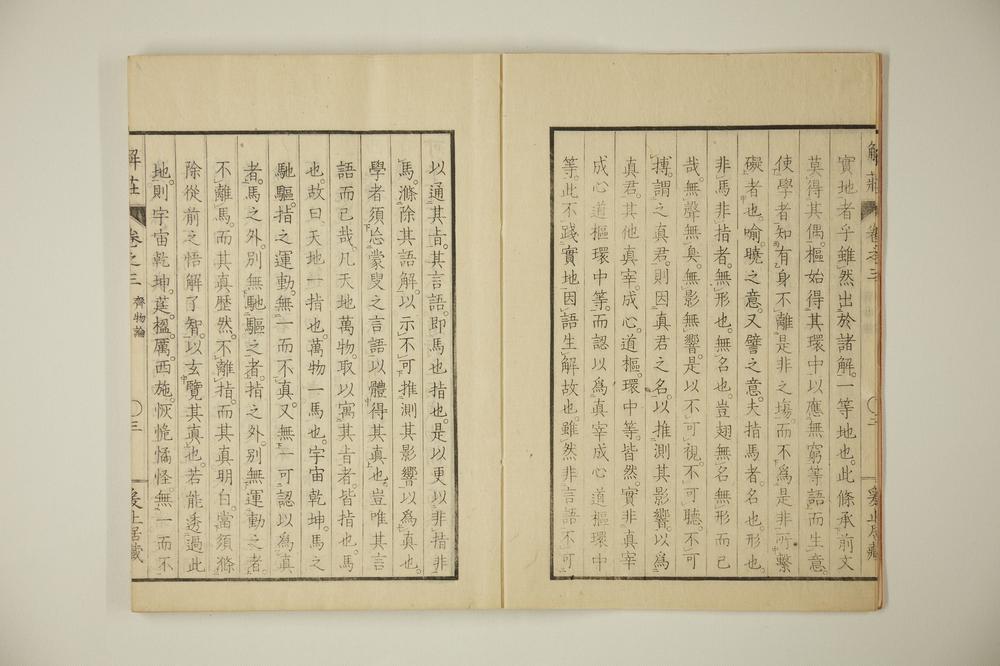 解莊 卷之三 爰止居藏
實地者乎。雖然出於諸解。一等地也。此條承前文
莫得其偶。樞始得其環中以應無窮等語。而生意。
使學者知有身不離是非之場。而不為是非所繫
礙者也。喻。曉之意。又譬之意。夫指馬者。名也。形也。
非馬非指者。無形也。無名也。豈翅無名無形而已
哉。無聲無臭。無影無響。是以不可視。不可聽。不可
摶。謂之真君。則因真君之名。以推測其影響。以為
真君。其他真宰。成心。道樞。環中等。皆然。實非真宰
成心道樞環中等。而認以為真宰成心道樞環中
等。此不踐實地。因語生解故也。雖然非言語。不可
以通其旨。其言語。即馬也指也。是以更以非指非
馬。滌除其語解。以示不可推測其影響以為真也。
學者須忘蒙叟之言語。以體得其真也。豈唯其言
語而已哉。凡天地萬物。取以寓其旨者。皆指也。馬
也。故曰。天地一指也。萬物一馬也。宇宙乾坤。馬之
馳驅。指之運動。無一而不真。又無一可認以為真
者。馬之外。別無馳驅之者。指之外。別無運動之者。
不離馬。而其真歷然。不離指。而其真明白。當須滌
除從前之悟解了智。以玄覽其真也。若能透過此
地。則宇宙乾坤。莛楹。厲。西施。恢恑憰怪。無一而不
解莊 卷之三 齊物論 〇三 爰止居藏